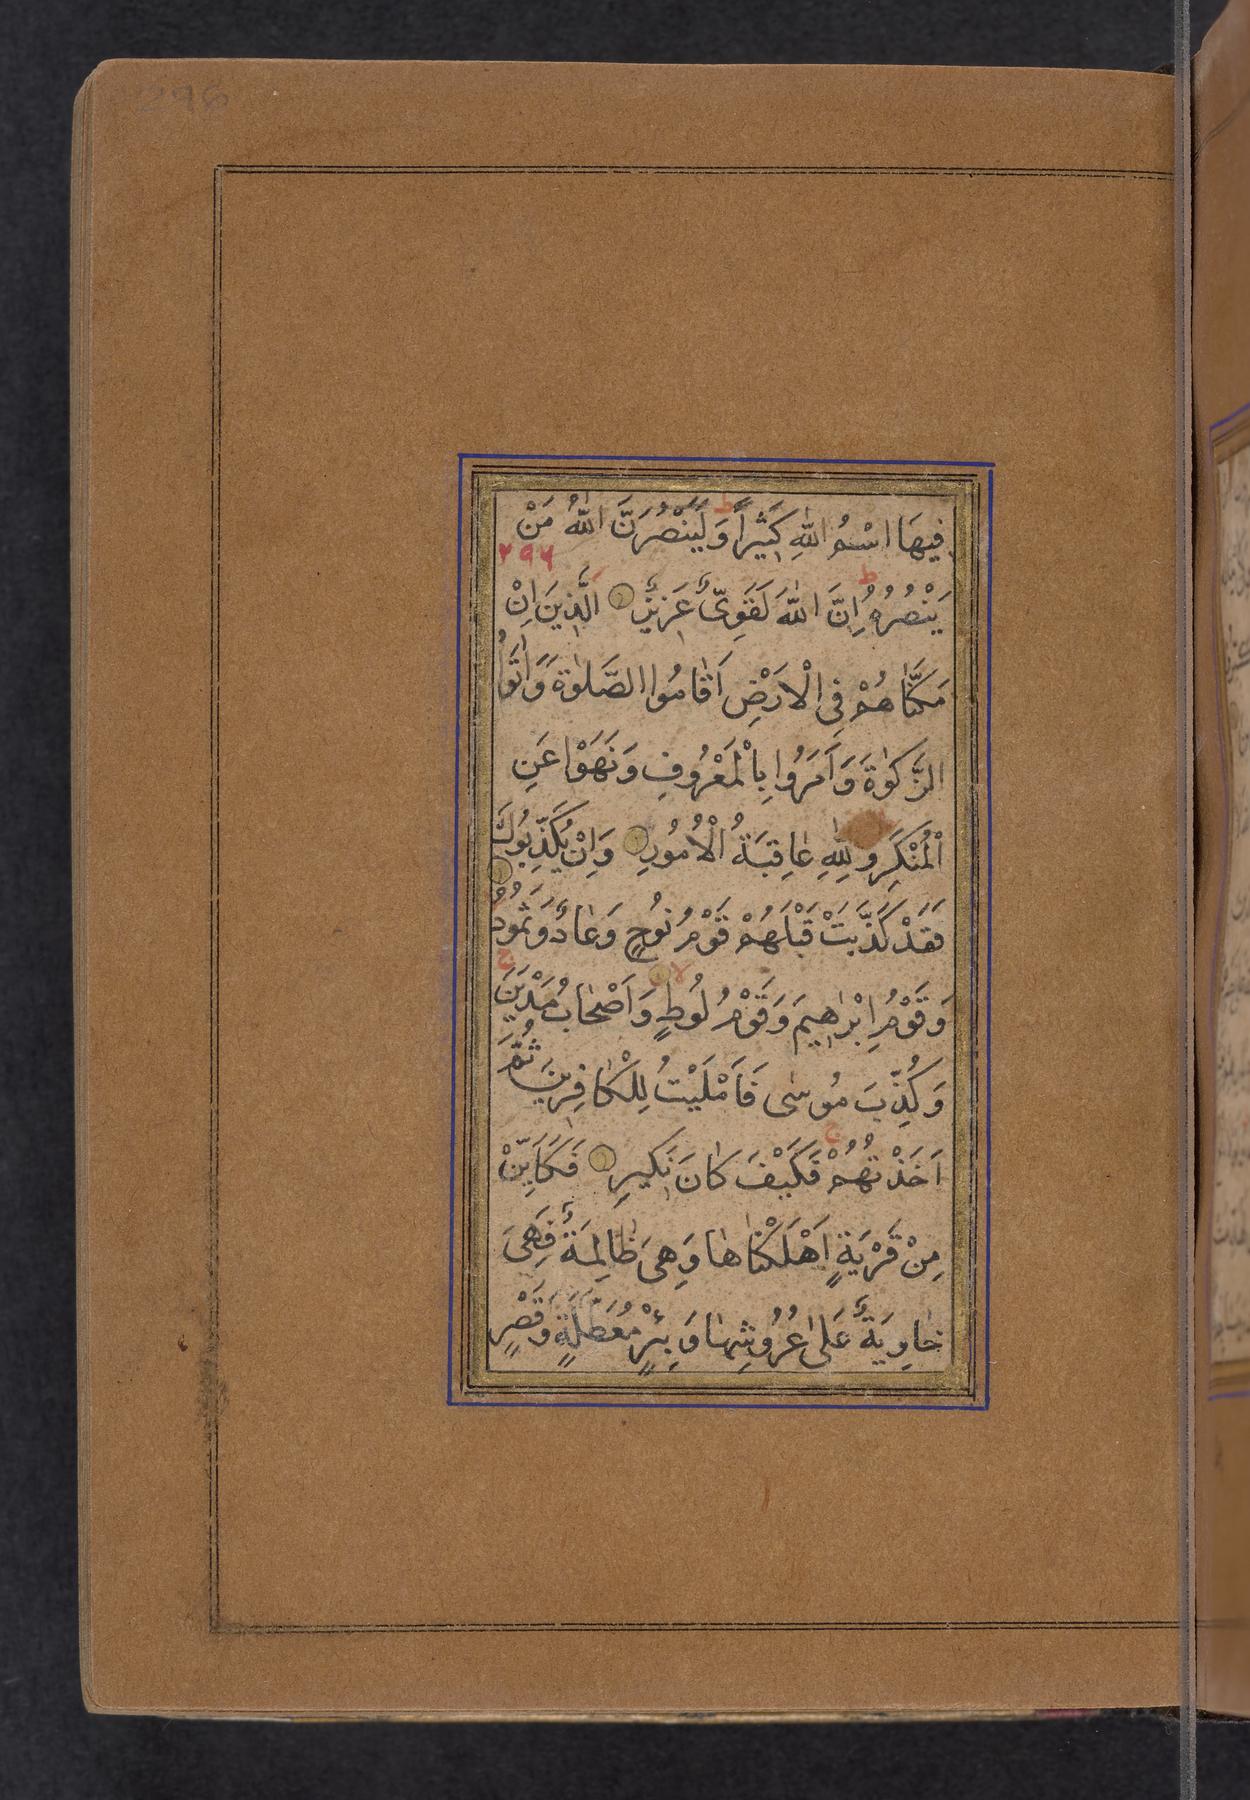 296
فِيهَا اسْمُ اللّٰهِ كَثِيرًا ط وَلَيَنْصُرَنَّ اللّٰهُ مَنْ
۲۹۶
يَنْصُرُهُ ط اِنَّ اللّٰهَ لَقَوِىٌّ عَزِيزٌ الَّذِينَ اِنْ
مَكَّنّٰاهُمْ فِى الْاَرْضِ اَقٰامُوا الصَّلٰوةَ وَاٰتَوُا
الزَّكٰوةَ وَاَمَرُوا بِالْمَعْرُوفِ وَنَهَوْا عَنِ
الْمُنْكَرِ وَلِلّٰهِ عٰاقِبَةُ الْاُمُورِ وَاِنْ يُكَذِّبُوكَ
فَقَدْ كَذَّبَتْ قَبْلَهُمْ قَوْمُ نُوحٍ وَعٰادٌ وَثَمُودُ
وَقَوْمُ اِبْرٰهِيمَ وَقَوْمُ لُوطٍ لا وَاَصْحٰابُ مَدْيَنَ ج
وَكُذِّبَ مُوسٰى فَاَمْلَيْتُ لِلْكٰافِرِينَ ثُمَّ
اَخَذْتُهُمْ ج فَكَيْفَ كٰانَ نَكِيرِ فَكَاَيِّنْ
مِنْ قَرْيَةٍ اَهْلَكْنٰاهٰا وَهِىَ ظٰالِمَةٌ فَهِىَ
خٰاوِيَةٌ عَلٰى عُرُوشِهٰا وَبِئْرٍ مُعَطَّلَةٍ وَقَصْرٍ